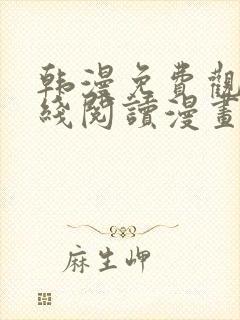 韩漫免費觀
綫閱讀漫畫
麻生岬